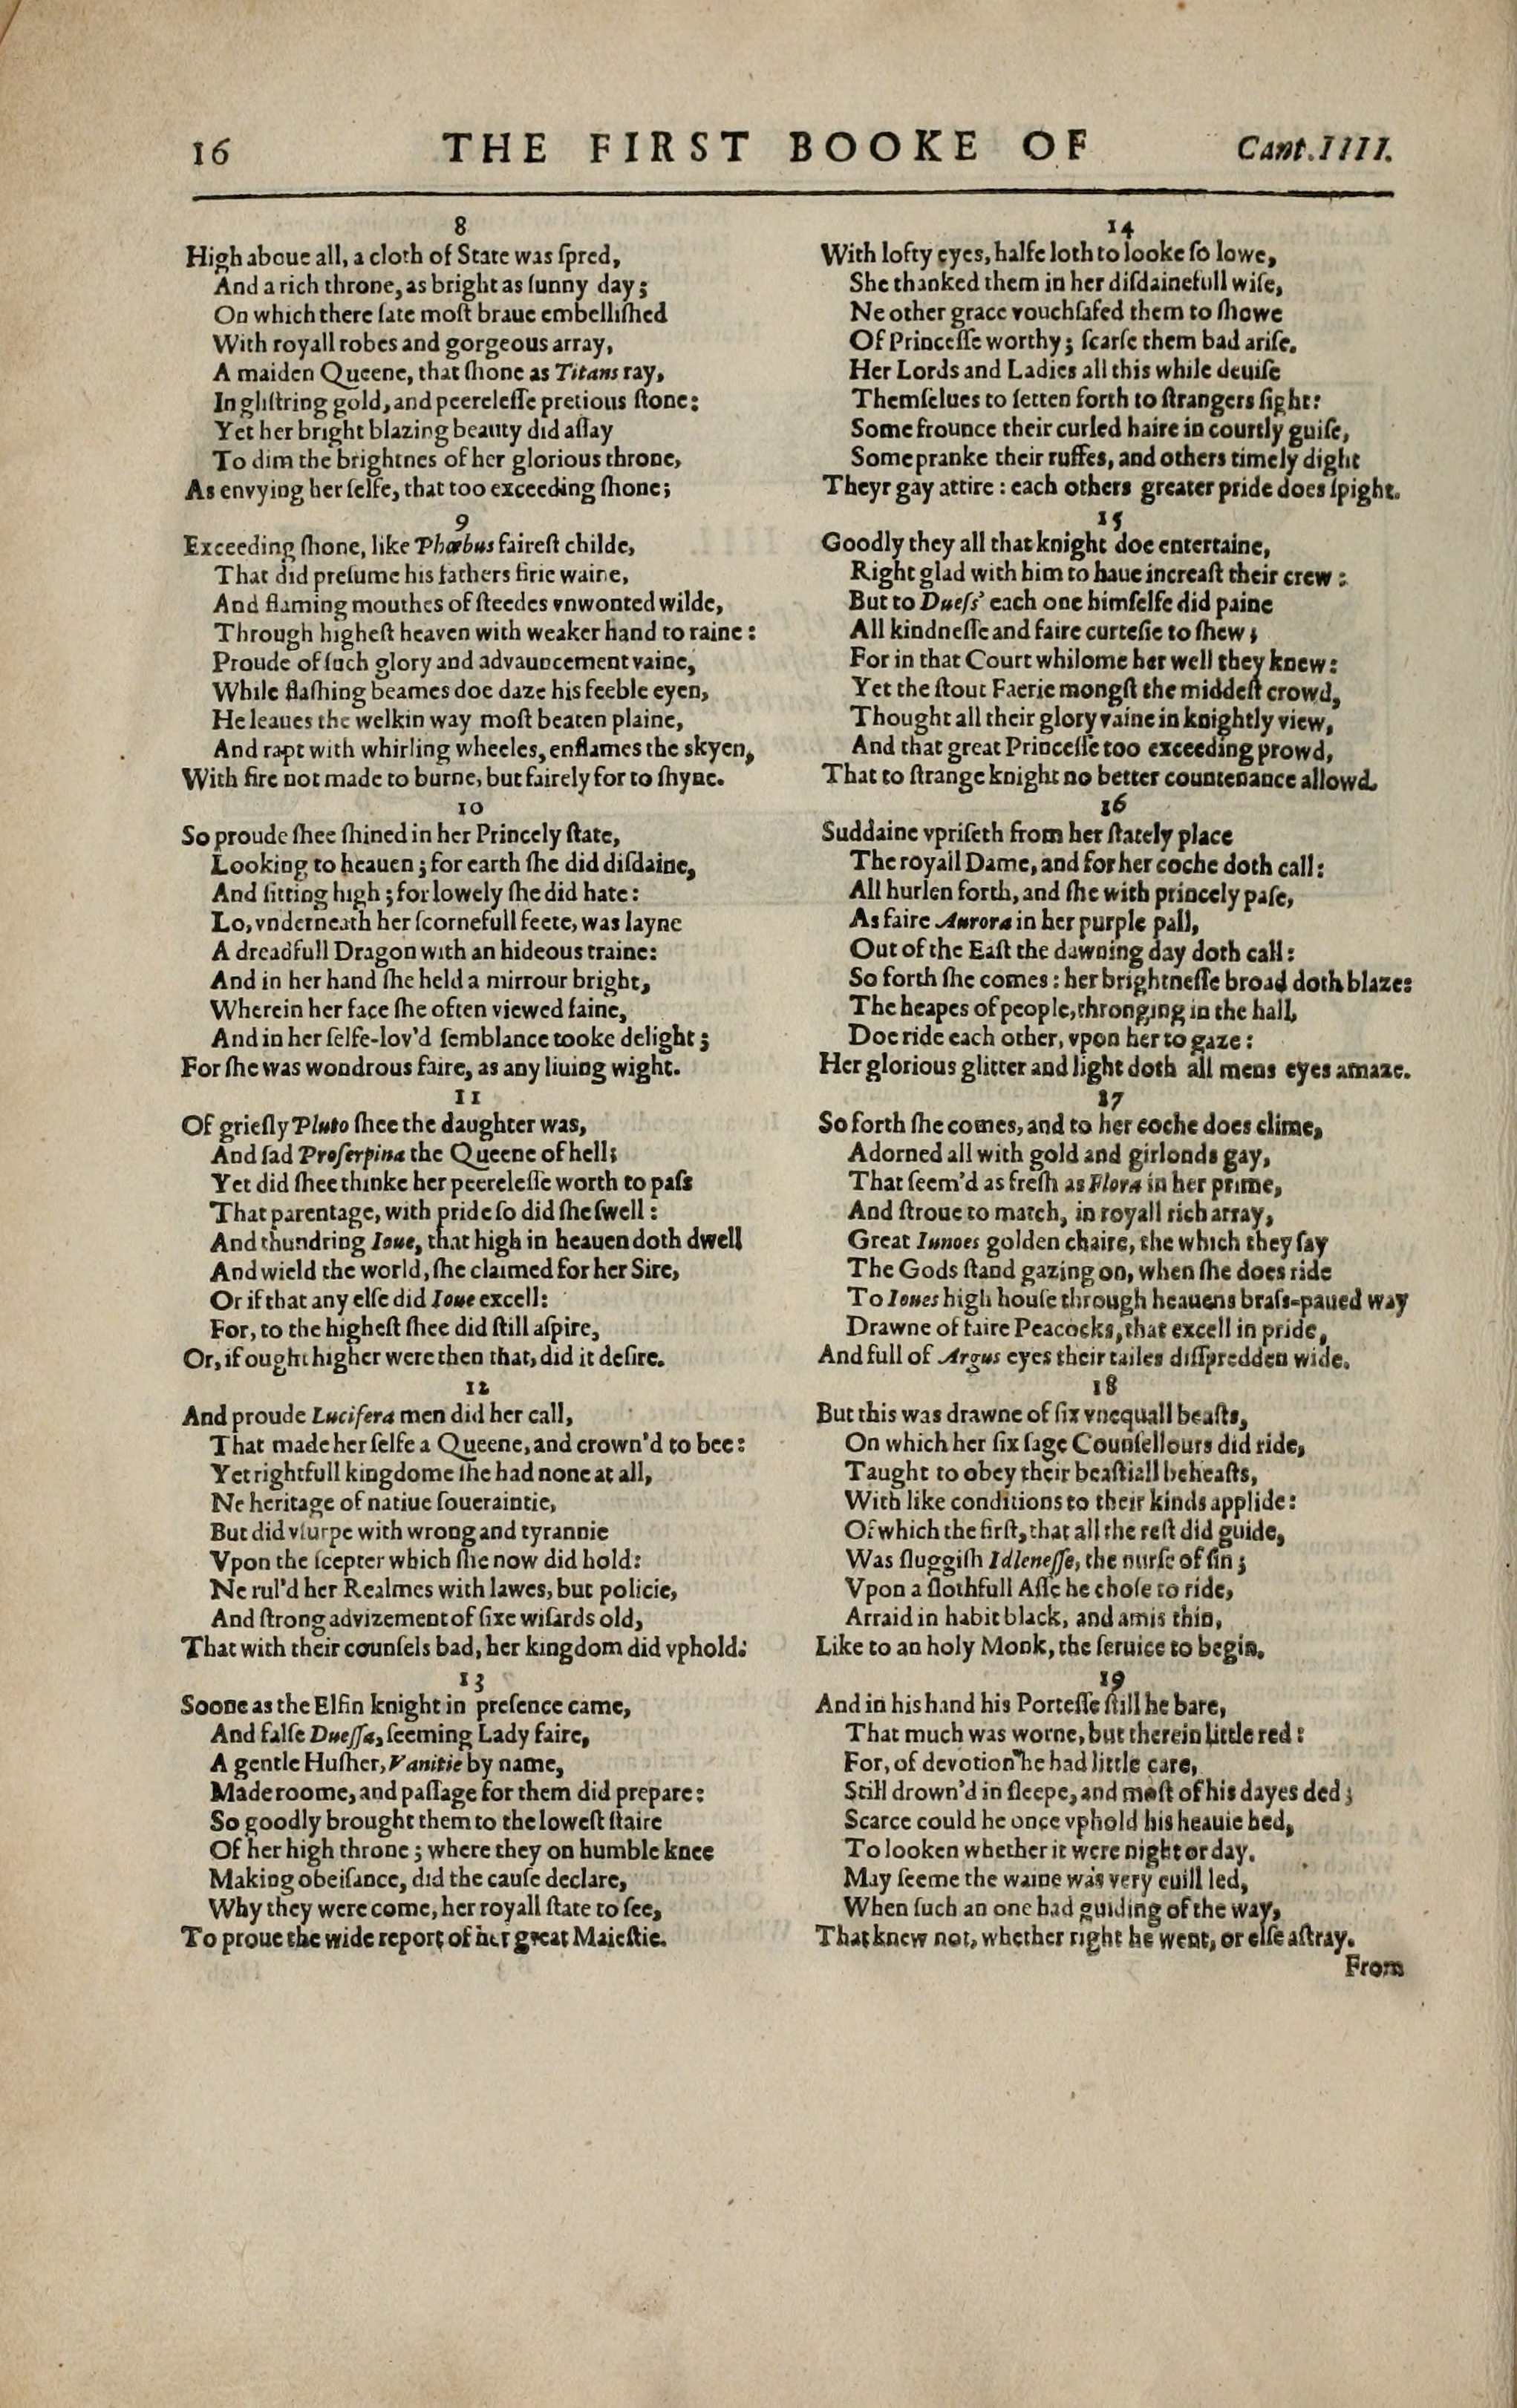 16 THE FIRST BOOKE OF Cant.IIII.
8
High aboue all, a cloth of State was ſpred,
And a rich throne, as bright as ſunny day;
On which there ſate moſt braue embelliſhed
With royall robes and gorgeous array,
A maiden Queene, that ſhone as Titans ray,
In gliſtring gold, and peereleſſe pretious ſtone:
Yet her bright blazing beauty did aſſay
To dim the brightnes of her glorious throne,
As envying her ſelfe, that too exceeding ſhone;
9
Exceeding ſhone, like Phœbus faireſt childe,
That did preſume his fathers firie waine,
And flaming mouthes of ſteedes vnwonted wilde,
Through higheſt heaven with weaker hand to raine:
Proude of ſuch glory and advauncement vaine,
While flaſhing beames doe daze his feeble eyen,
He leaues the welkin way moſt beaten plaine,
And rapt with whirling wheeles, enflames the skyen,
With fire not made to burne, but fairely for to ſhyne.
10
So proude ſhee ſhined in her Princely ſtate,
Looking to heauen; for earth ſhe did diſdaine,
And ſitting high; for lowely ſhe did hate:
Lo, vnderneath her ſcornefull feete, was layne
A dreadfull Dragon with an hideous traine:
And in her hand ſhe held a mirrour bright,
Wherein her face ſhe often viewed faine,
And in her ſelfe-lov'd ſemblance tooke delight;
For ſhe was wondrous faire, as any liuing wight.
11
Of grieſly Pluto ſhee the daughter was,
And ſad Proſerpina the Queene of hell;
Yet did ſhee thinke her peereleſſe worth to paſs
That parentage, with pride ſo did ſhe ſwell:
And thundring Ioue, that high in heauen doth dwell
And wield the world, ſhe claimed for her Sire,
Or if that any elſe did Ioue excell:
For, to the higheſt ſhee did ſtill aſpire,
Or, if ought higher were then that, did it deſire.
12
And proude Lucifera men did her call,
That made her ſelfe a Queene, and crown'd to bee:
Yet rightfull kingdome ſhe had none at all,
Ne heritage of natiue ſoueraintie,
But did vſurpe with wrong and tyrannie
Vpon the ſcepter which ſhe now did hold:
Ne rul'd her Realmes with lawes, but policie,
And ſtrong advizement of ſixe wiſards old,
That with their counſels bad, her kingdom did vphold.
13
Soone as the Elfin knight in preſence came,
And falſe Dueſſa, ſeeming Lady faire,
A gentle Huſher, Vanitie by name,
Made roome, and paſſage for them did prepare:
So goodly brought them to the loweſt ſtaire
Of her high throne; where they on humble knee
Making obeiſance, did the cauſe declare,
Why they were come, her royall ſtate to ſee,
To proue the wide report of her great Maieſtie.
14
With lofty eyes, halfe loth to looke ſo lowe,
She thanked them in her diſdainefull wiſe,
Ne other grace vouchſafed them to ſhowe
Of Princeſſe worthy; ſcarſe them bad ariſe.
Her Lords and Ladies all this while deuiſe
Themſelues to ſetten forth to ſtrangers ſight:
Some frounce their curled haire in courtly guiſe,
Some pranke their ruffes, and others timely dight
Theyr gay attire: each others greater pride does ſpight.
15
Goodly they all that knight doe entertaine,
Right glad with him to haue increaſt their crew:
But to Dueſs' each one himſelfe did paine
All kindneſſe and faire curteſie to ſhew;
For in that Court whilome her well they knew:
Yet the ſtout Faerie mongſt the middeſt crowd,
Thought all their glory vaine in knightly view,
And that great Princeſſe too exceeding prowd,
That to ſtrange knight no better countenance allowd.
16
Suddaine vpriſeth from her ſtately place
The royall Dame, and for her coche doth call:
All hurlen forth, and ſhe with princely paſe,
As faire Aurora in her purple pall,
Out of the Eaſt the dawning day doth call:
So forth ſhe comes: her brightneſſe broad doth blaze:
The heapes of people, thronging in the hall,
Doe ride each other, vpon her to gaze:
Her glorious glitter and light doth all mens eyes amaze.
17
So forth ſhe comes, and to her coche does clime,
Adorned all with gold and girlonds gay,
That ſeem'd as freſh as Flora in her prime,
And ſtroue to match, in royall rich array,
Great Iunoes golden chaire, the which they ſay
The Gods ſtand gazing on, when ſhe does ride
To Ioues high houſe through heauens braſs-paued way
Drawne of faire Peacocks, that excell in pride,
And full of Argus eyes their tailes diſſpredden wide.
18
But this was drawne of ſix vnequall beaſts,
On which her ſix ſage Counſellours did ride,
Taught to obey their beaſtiall beheaſts,
With like conditions to their kinds applide:
Of which the firſt, that all the reſt did guide,
Was ſluggiſh Idleneſſe, the nurſe of ſin;
Vpon a ſlothfull Aſſe he choſe to ride,
Arraid in habit black, and amis thin,
Like to an holy Monk, the ſeruice to begin.
19
And in his hand his Porteſſe ſtill he bare,
That much was worne, but therein little red:
For, of devotion he had little care,
Still drown'd in ſleepe, and moſt of his dayes ded;
Scarce could he once vphold his heauie hed,
To looken whether it were night or day.
May ſeeme the waine was very euill led,
When ſuch an one had guiding of the way,
That knew not, whether right he went, or elſe aſtray.
From